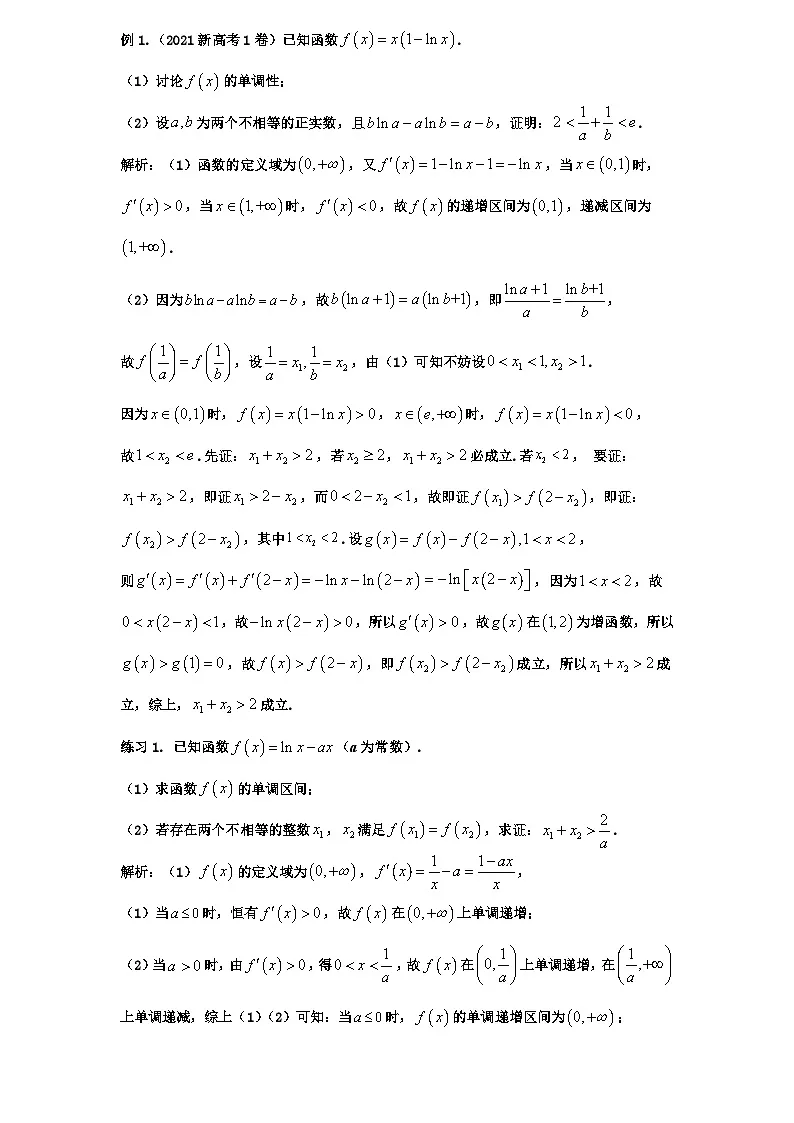 例 1.（2021 新高考 1 卷）已知函数 f(x)=x(1−ln x).
（1）讨论 f(x) 的单调性；
（2）设 a,b 为两个不相等的正实数，且 b ln a−a ln b=a−b，证明：2<1/a+1/b<e.
解析：（1）函数的定义域为(0,+∞)，又 f′(x)=1−ln x−1=−ln x，当 x∈(0,1)时，
f′(x)>0，当 x∈(1,+∞)时，f′(x)<0，故 f(x) 的递增区间为(0,1)，递减区间为
(1,+∞).
（2）因为 b ln a−a ln b=a−b，故 b(ln a+1)=a(ln b+1)，即 (ln a+1)/a=(ln b+1)/b，
故 f(1/a)=f(1/b)，设 1/a=x₁,1/b=x₂，由（1）可知不妨设 0<x₁<1,x₂>1.
因为 x∈(0,1)时，f(x)=x(1−ln x)>0，x∈(e,+∞)时，f(x)=x(1−ln x)<0，
故 1<x₂<e.先证：x₁+x₂>2，若 x₂≥2，x₁+x₂>2 必成立.若 x₂<2， 要证：
x₁+x₂>2，即证 x₁>2−x₂，而 0<2−x₂<1，故即证 f(x₁)>f(2−x₂)，即证：
f(x₂)>f(2−x₂)，其中 1<x₂<2.设 g(x)=f(x)−f(2−x),1<x<2，
则 g′(x)=f′(x)+f′(2−x)=−ln x−ln(2−x)=−ln[x(2−x)]，因为 1<x<2，故
0<x(2−x)<1，故 −ln x(2−x)>0，所以 g′(x)>0，故 g(x) 在(1,2)为增函数，所以
g(x)>g(1)=0，故 f(x)>f(2−x)，即 f(x₂)>f(2−x₂)成立，所以 x₁+x₂>2 成
立，综上，x₁+x₂>2 成立.
练习 1. 已知函数 f(x)=ln x−ax（a 为常数）.
（1）求函数 f(x) 的单调区间；
（2）若存在两个不相等的整数 x₁，x₂ 满足 f(x₁)=f(x₂)，求证：x₁+x₂>2/a.
解析：（1）f(x) 的定义域为(0,+∞)，f′(x)=1/x−a=(1−ax)/x，
（1）当 a≤0 时，恒有 f′(x)>0，故 f(x) 在(0,+∞)上单调递增；
（2）当 a>0 时，由 f′(x)>0，得 0<x<1/a，故 f(x) 在(0,1/a)上单调递增，在(1/a,+∞)
上单调递减，综上（1）（2）可知：当 a≤0 时，f(x) 的单调递增区间为(0,+∞)；